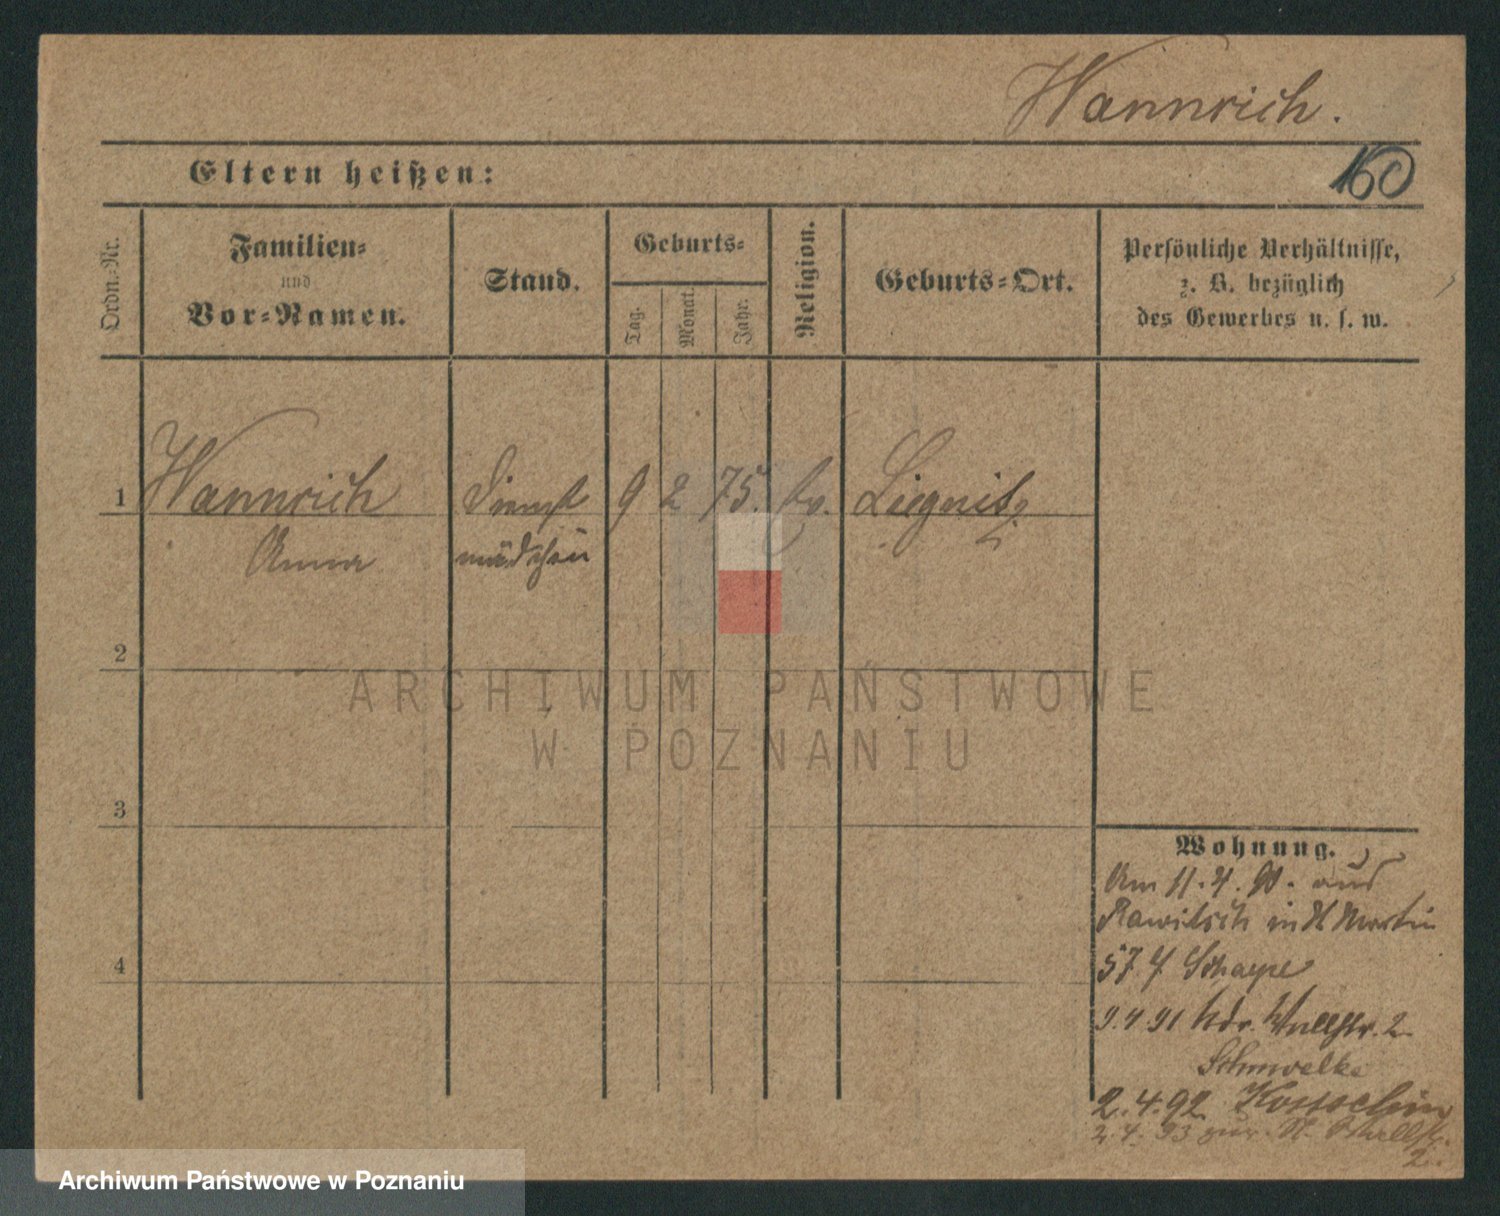 Wannrich.
Eltern heißen:
160
Ordn.-Nr.
Familien-
und
Vor-Namen.
Stand.
Geburts-
Tag.
Monat.
Jahr.
Religion.
Geburts-Ort.
Persönliche Verhältnisse,
z. B. bezüglich
des Gewerbes u. s. w.
1 Wannrich Dienst 9 2 75. Ev. Liegnitz
Anna mädchen
2
3
4
Wohnung.
Am 11.4.90. aus
Rawitsch in St Martin
57
9.4.91 Wallstr. 2.
2.4.92
2.4.93 zur. St.
2.
ARCHIWUM PAŃSTWOWE
W POZNANIU
Archiwum Państwowe w Poznaniu